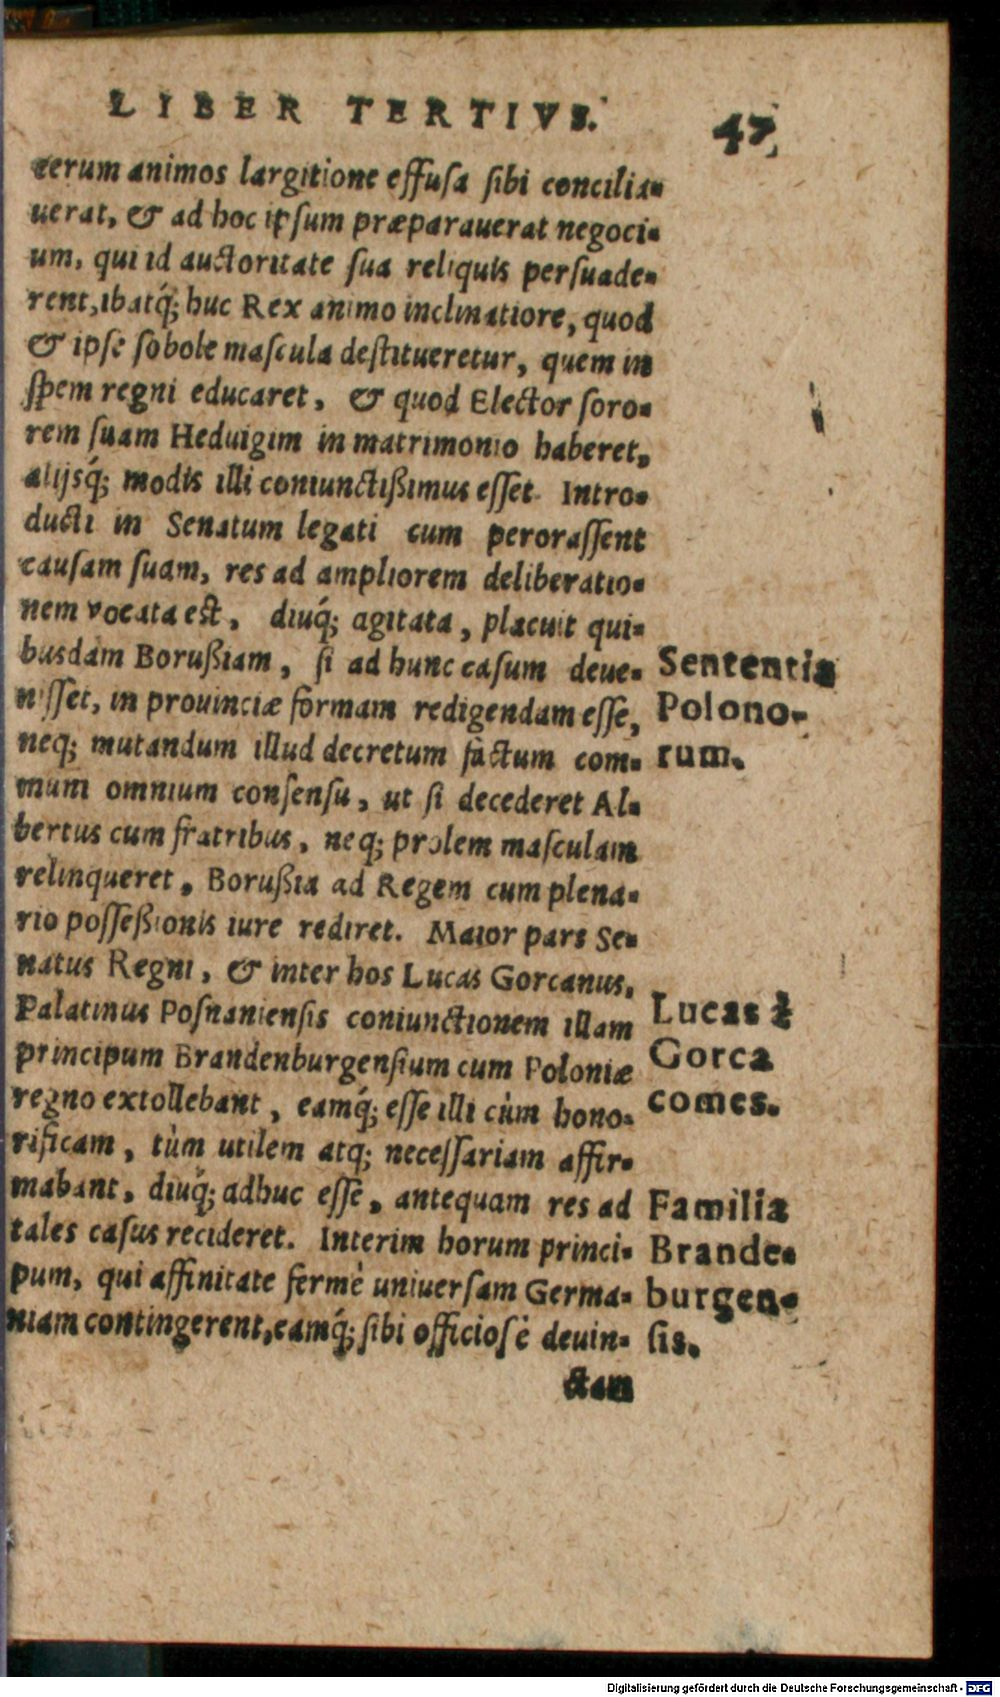 LIBER TERTIVS.
47
cerum animos largitione effusa sibi concilia-
uerat, & ad hoc ipsum præparauerat negoci-
um, qui id auctoritate sua reliquis persuade-
rent, ibatq́; huc Rex animo inclinatiore, quod
& ipse sobole mascula destitueretur, quem in
spem regni educaret, & quod Elector soro-
rem suam Heduigim in matrimonio haberet,
alijsq́; modis illi coniunctißimus esset. Intro-
ducti in Senatum legati cum perorassent
causam suam, res ad ampliorem deliberatio-
nem vocata est, diuq́; agitata, placuit qui-
busdam Borußiam, si ad hunc casum deue-
nisset, in prouinciæ formam redigendam esse,
neq; mutandum illud decretum factum com-
muni omnium consensu, ut si decederet Al-
bertus cum fratribus, neq; prolem masculam
relinqueret, Borußia ad Regem cum plena-
rio possessionis iure rediret. Maior pars Se-
natus Regni, & inter hos Lucas Gorcanus,
Palatinus Posnaniensis coniunctionem illam
principum Brandenburgensium cum Poloniæ
regno extollebant, eamq́; esse illi cùm hono-
rificam, tùm utilem atq; necessariam affir-
mabant, diuq́; adhuc esse, antequam res ad
tales casus recideret. Interim horum princi-
pum, qui affinitate fermè uniuersam Germa-
niam contingerent, eamq́; sibi officiosè deuin-
ctam
Sententia
Polono-
rum.
Lucas à
Gorca
comes.
Familia
Brande-
burgen-
sis.
Digitalisierung gefördert durch die Deutsche Forschungsgemeinschaft - DFG